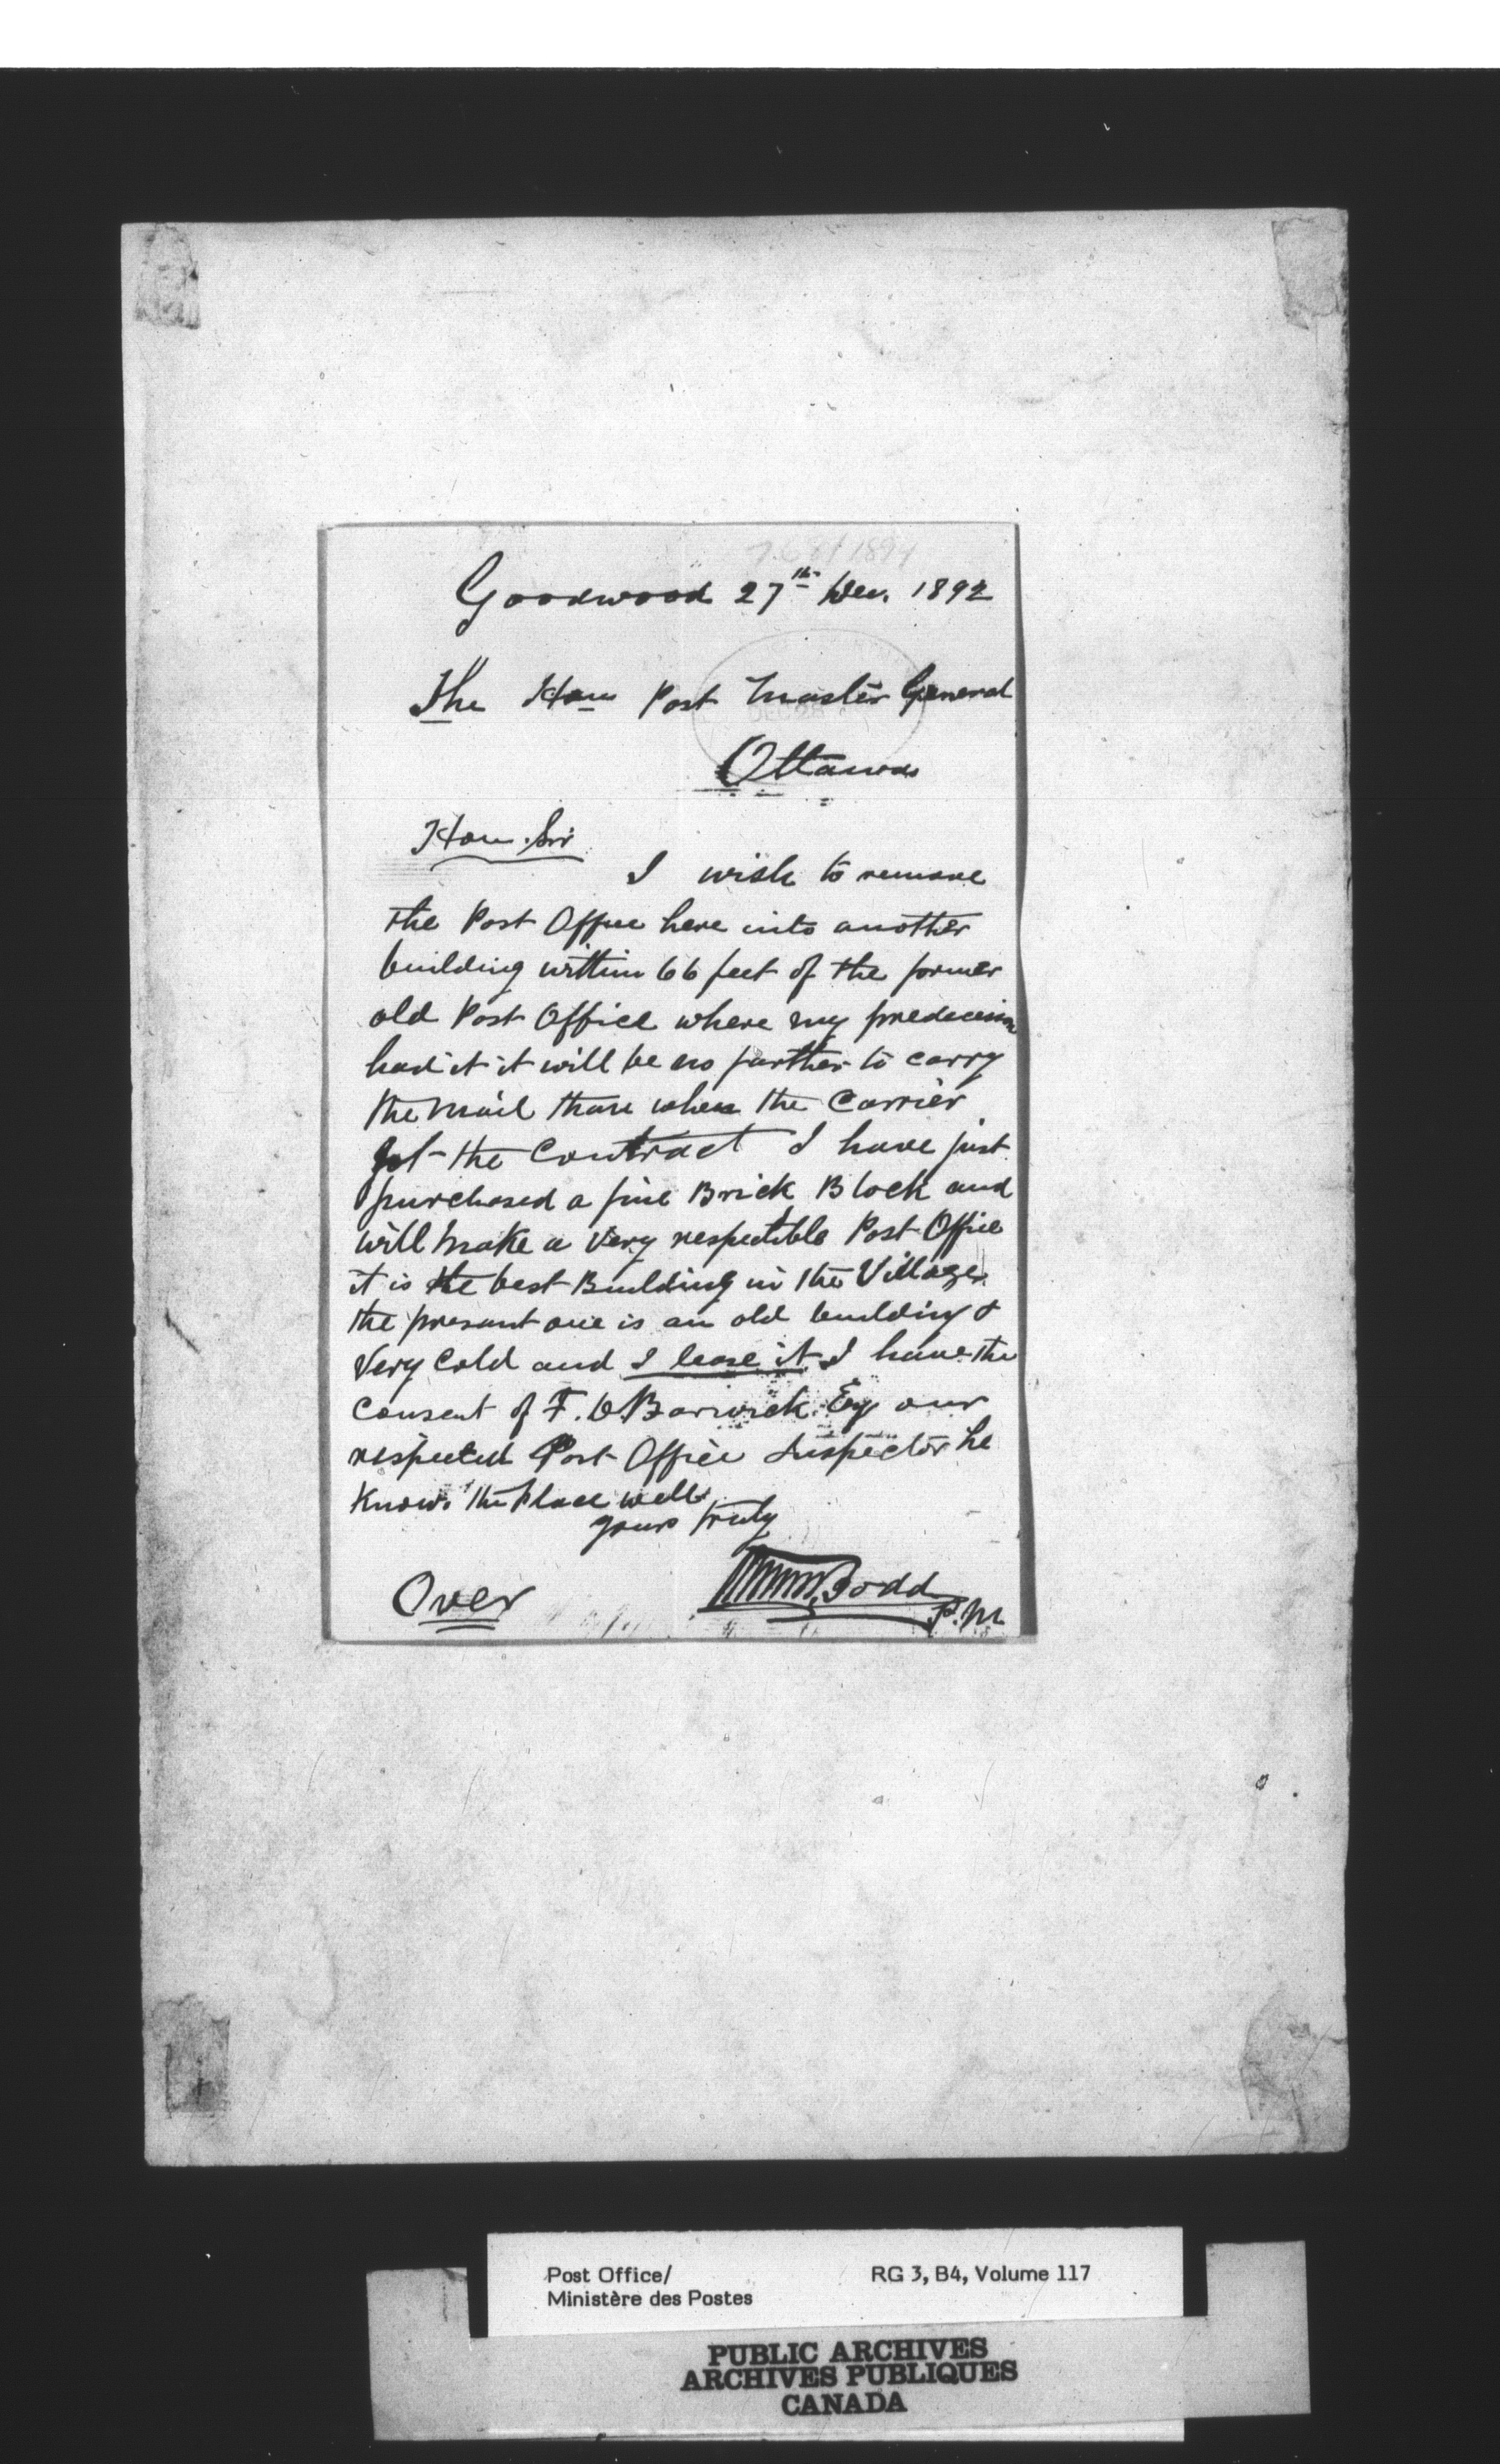 Goodwood 27th Dec. 1892
The Hon Post Master General
Ottawa
Hon. Sir
I wish to remove
the Post Office here into another
building within 66 feet of the former
old Post Office where my predecessor
had it it will be no further to carry
the Mail than when the Carrier
got the Contract I have just
purchased a fine Brick Block and
will make a Very respectible Post Office
it is the best Building in the Village
the present one is an old building &
Very Cold and I lease it I have the
Consent of F. Barwick Esq our
respected Post Office Inspector he
Knows the Place well
yours truly
Over
Dodd
P.M.
Post Office/
Ministère des Postes
RG 3, B4, Volume 117
PUBLIC ARCHIVES
ARCHIVES PUBLIQUES
CANADA